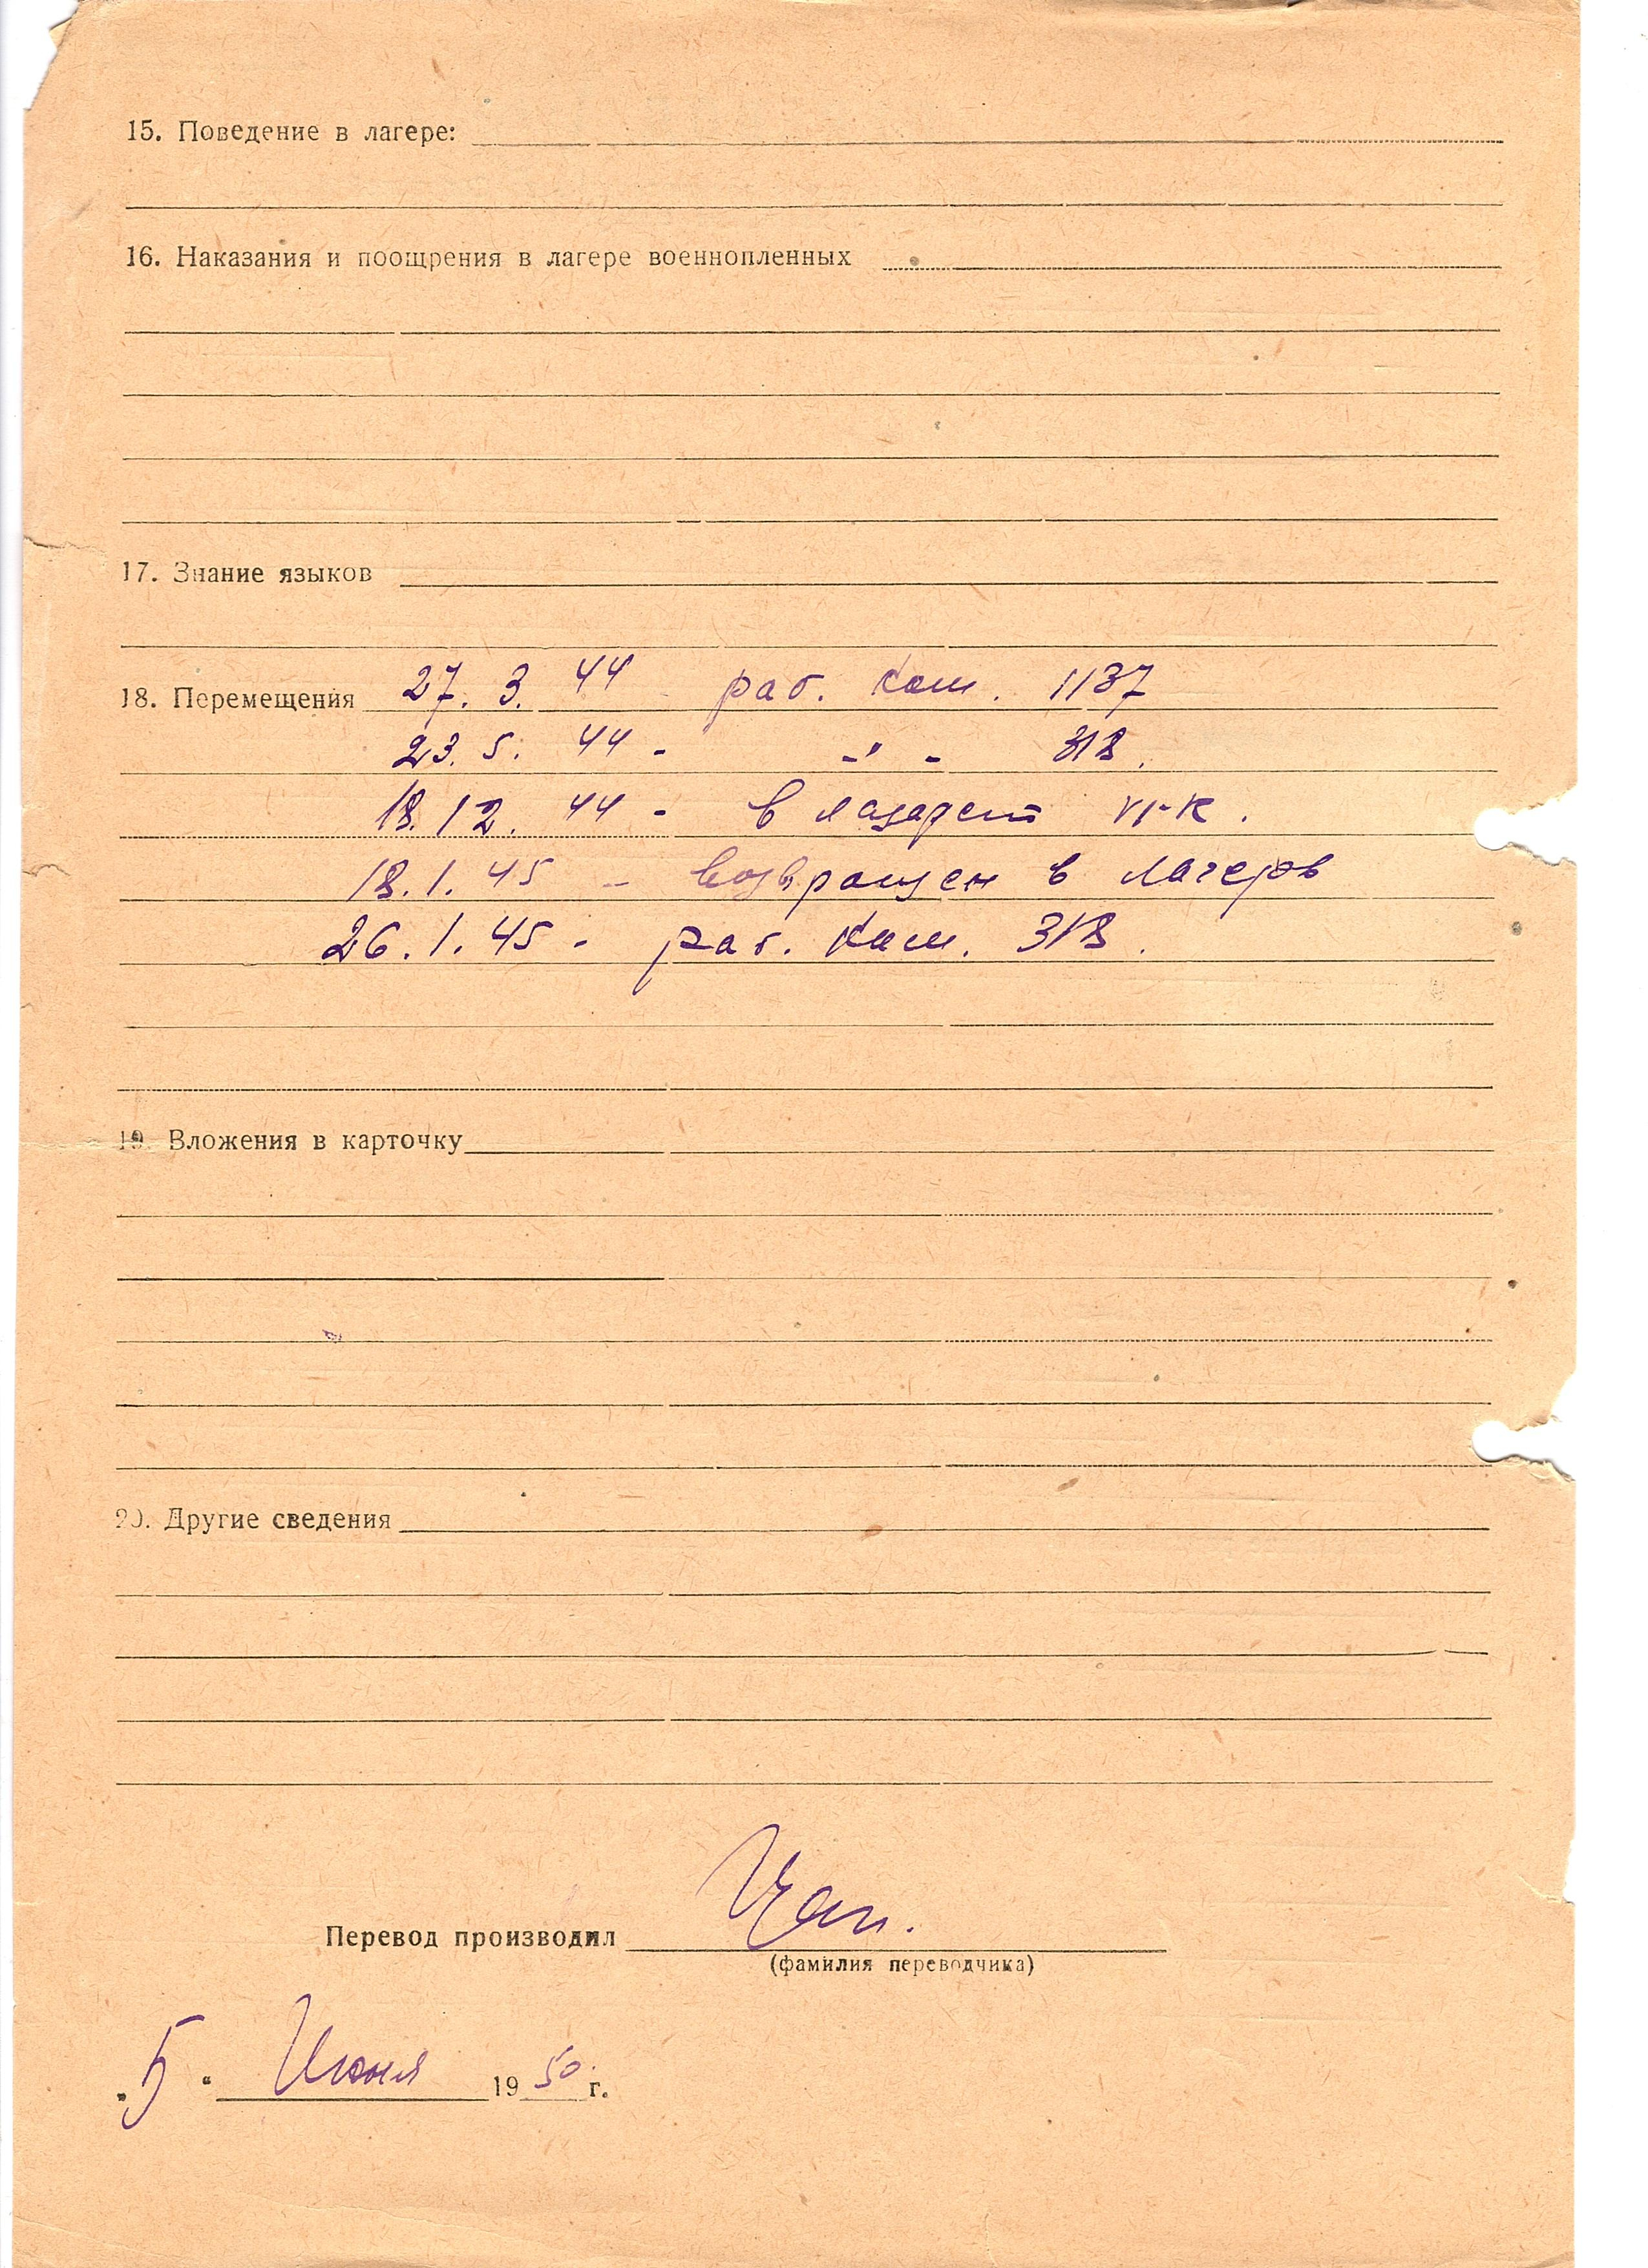 15. Поведение в лагере:
16. Наказания и поощрения в лагере военнопленных
17. Знание языков
18. Перемещения 27. 3. 44 - раб. Ком. 1137
23. 5. 44 - -"- 318.
18. 12. 44 - в лазарет VI-К.
18. 1. 45 - возвращен в лагерь
26. 1. 45 - раб. Ком. 318.
19. Вложения в карточку
20. Другие сведения
Перевод производил
(фамилия переводчика)
„5“ Июня 1950 г.